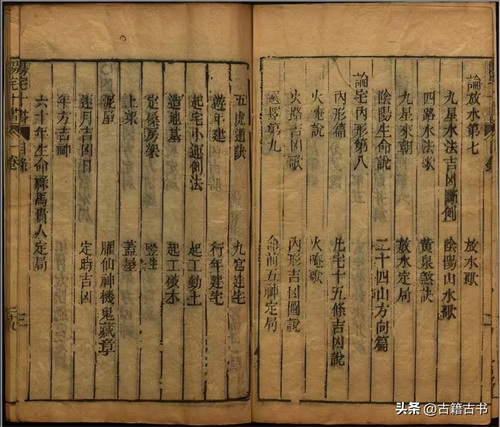 論放水第七　放水歌
九星水法吉凶斷例　陰陽山水歌
四路水法歌　黃泉煞訣
九星來朝　放水定局
陰陽生命說　二十四山方向篇
論宅內形第八
內形篇　宅十五條吉凶說
火庵歌
內形吉凶圖說
第九　命前五神定局
五虎遁訣　九宮建宅
遊年建宅　行年建宅
起宅小運例法　起工動土
造地基　起工破木
定磉扇架　豎柱
上梁　蓋屋
泥屋　仙神機鬼藏章
逐月吉凶日　定時吉凶
年方吉神
六十年生命祿馬貴人定局
陽宅十書　目錄　三
头条 @古籍古书